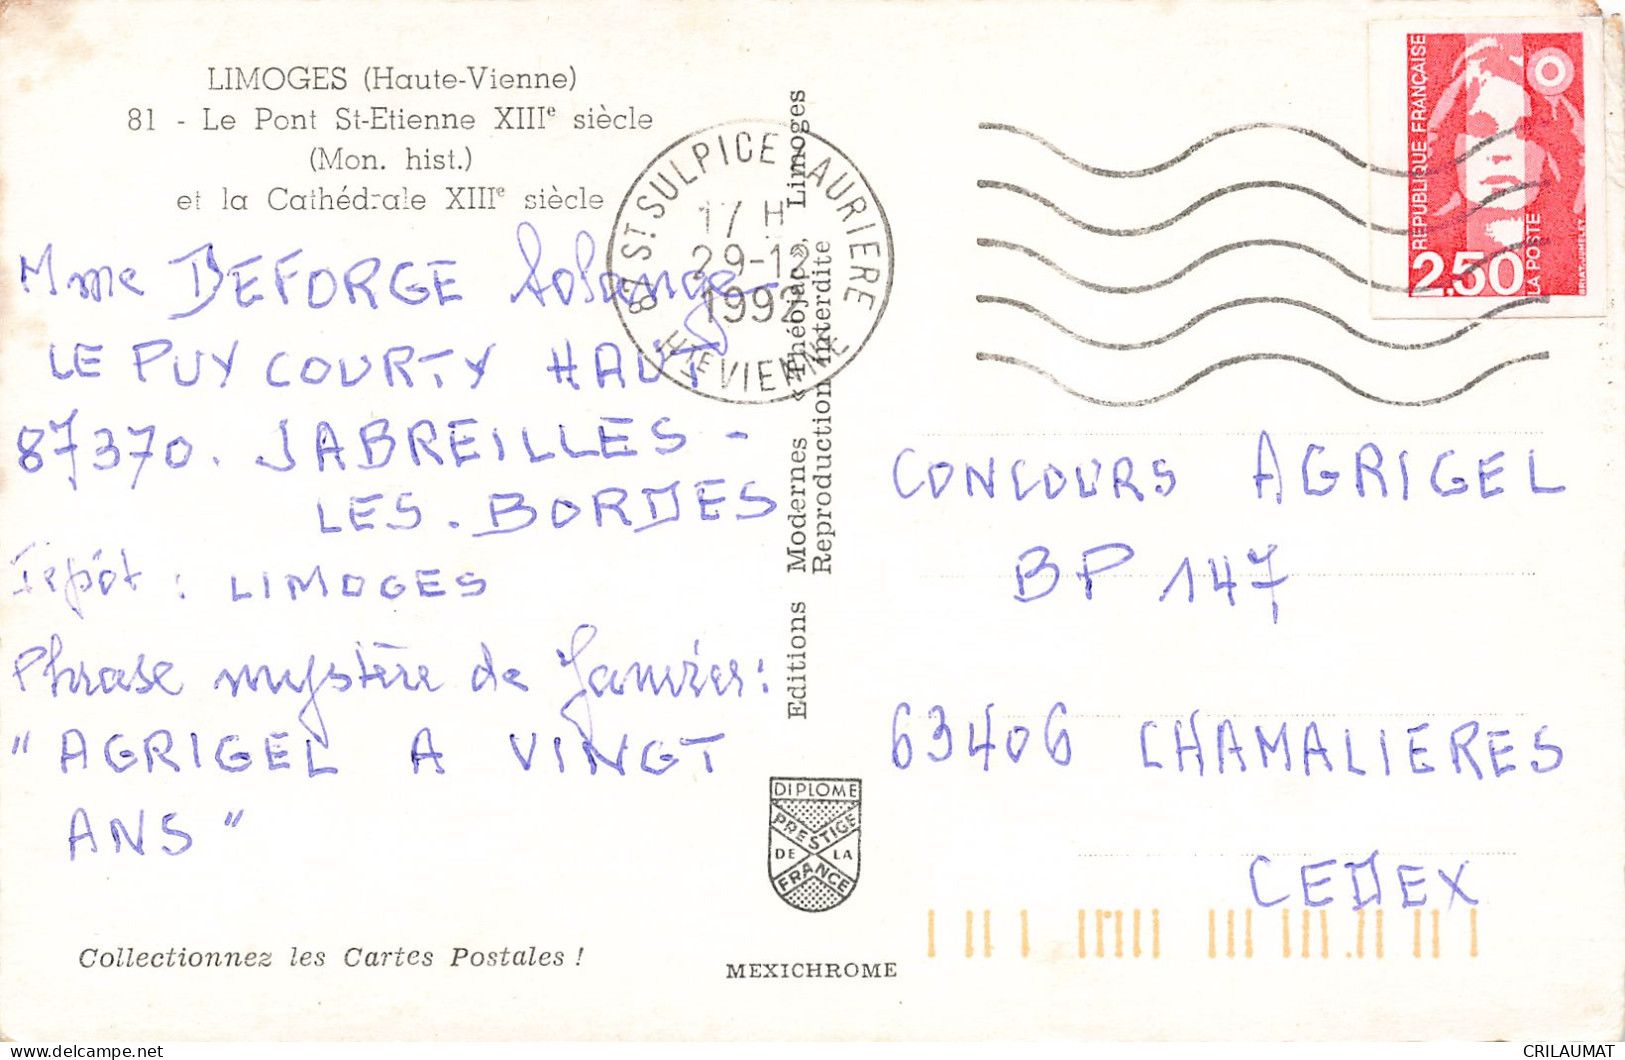 LIMOGES (Haute-Vienne)
81 - Le Pont St-Etienne XIIIe siècle
(Mon. hist.)
et la Cathédrale XIIIe siècle
Mme DEFORGE Solange
LE PUY COURTY HAUT
87370. JABREILLES -
LES. BORDES
Dépôt : LIMOGES
Phrase mystère de Janvier :
"AGRIGEL A VINGT
ANS"
Collectionnez les Cartes Postales !
Editions Modernes « Théojac », Limoges
Reproduction Interdite
DIPLOME
PRESTIGE
DE LA
FRANCE
MEXICHROME
87 ST. SULPICE LAURIERE
17 H
29-12
1992
HTE VIENNE
REPUBLIQUE FRANÇAISE
2,50
LA POSTE
BRIAT-JUMELET
CONCOURS AGRIGEL
BP 147
63406 CHAMALIERES
CEDEX
CRILAUMAT